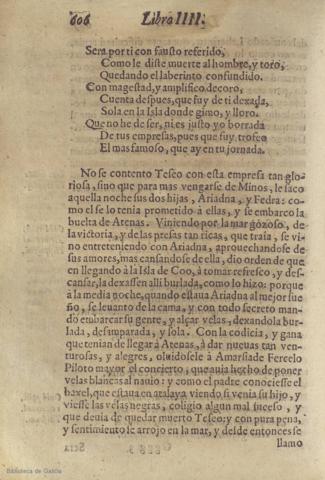 606 Libro IIII.
Sera por ti con fausto referido,
Como le diste muerte al hombre, y toro,
Quedando el laberinto confundido.
Con magestad, y amplifico decoro,
Cuenta despues, que fuy de ti dexada,
Sola en la Isla donde gimo, y lloro.
Que no he de ser, ni es justo yo borrada
De tus empresas, pues que fuy trofeo
El mas famoso, que ay en tu jornada.
No se contento Teseo con esta empresa tan glo-
riosa, sino que para mas vengarse de Minos, le saco
aquella noche sus dos hijas, Ariadna, y Fedra: co-
mo el se lo tenia prometido à ellas, y se embarco la
buelta de Atenas. Viniendo por la mar gozoso, de
la victoria, y de las presas tan ricas, que traia, se vi-
no entreteniendo con Ariadna, aprouechandose de
sus amores, mas cansandose de ella, dio orden de que
en llegando à la Isla de Coo, à tomar refresco, y des-
cansar, la dexassen alli burlada, como lo hizo: porque
à la media noche, quando estaua Ariadna al mejor sue
ño, se leuanto de la cama, y con todo secreto man-
do embarcar su gente, y alçar velas, dexandola bur-
lada, desmparada, y sola. Con la codicia, y gana
que tenian de llegar à Atenas, à dar nueuas tan ven-
turosas, y alegres, oluidosele à Amarsiade Fercelo
Piloto mayor el concierto, que auia hecho de poner
velas blancas al nauio: y como el padre conociesse el
baxel, que estaua en atalaya viendo si venia su hijo, y
viesse las velas negras, coligio algun mal suceso, y
que deuia de quedar muerto Teseo: y con pura pena,
y sentimiento se arrojo en la mar, y desde entonces se
llamo
Biblioteca de Galicia